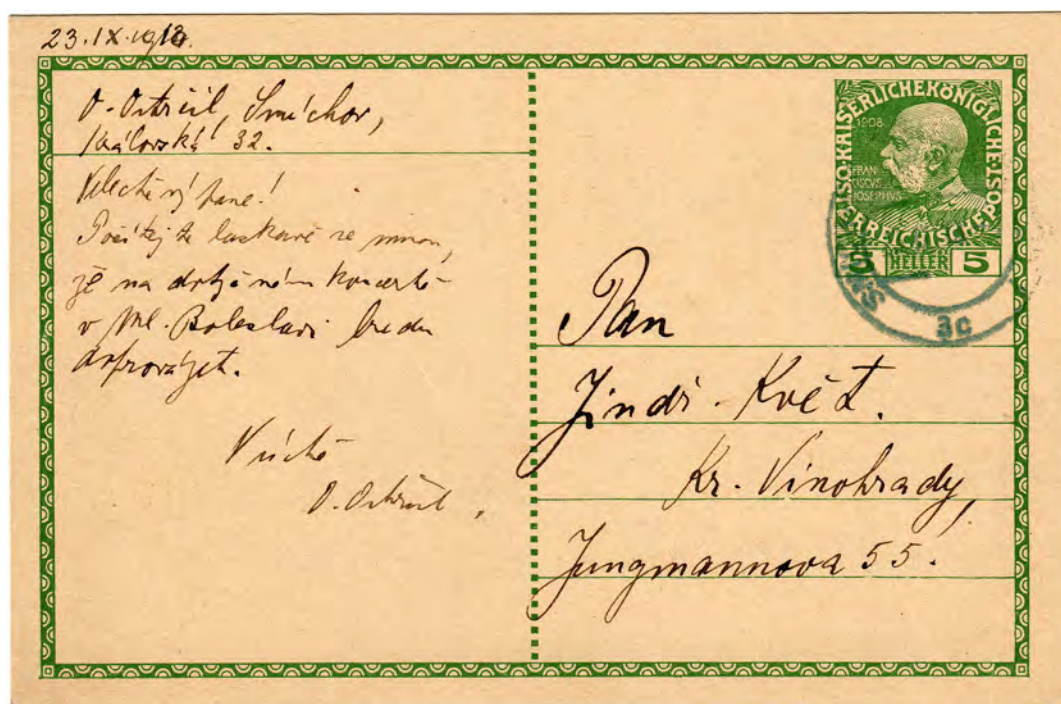 23.IX.1910.
O. Ostrčil, Smíchov,
Královská 32.
Velectěný pane!
Počítejte laskavě se mnou,
že na dotyčném koncertě
v Ml. Boleslavi budu
doprovázet.
V úctě
O. Ostrčil,
KAISERLICHEKÖNIGLICHE
ÖSTERREICHISCHE POST
1908
FRAN
CISCVS
IOSEPHVS
5 HELLER 5
3c
Pan
Jindř. Květ.
Kr. Vinohrady,
Jungmannova 55.